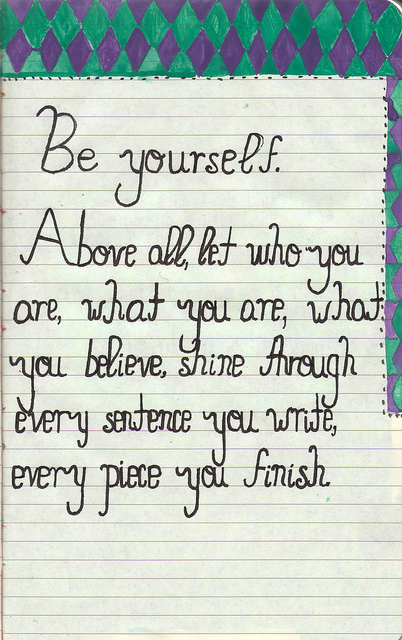 Be yourself.
Above all, let who you
are, what you are, what
you believe, shine through
every sentence you write,
every piece you finish.